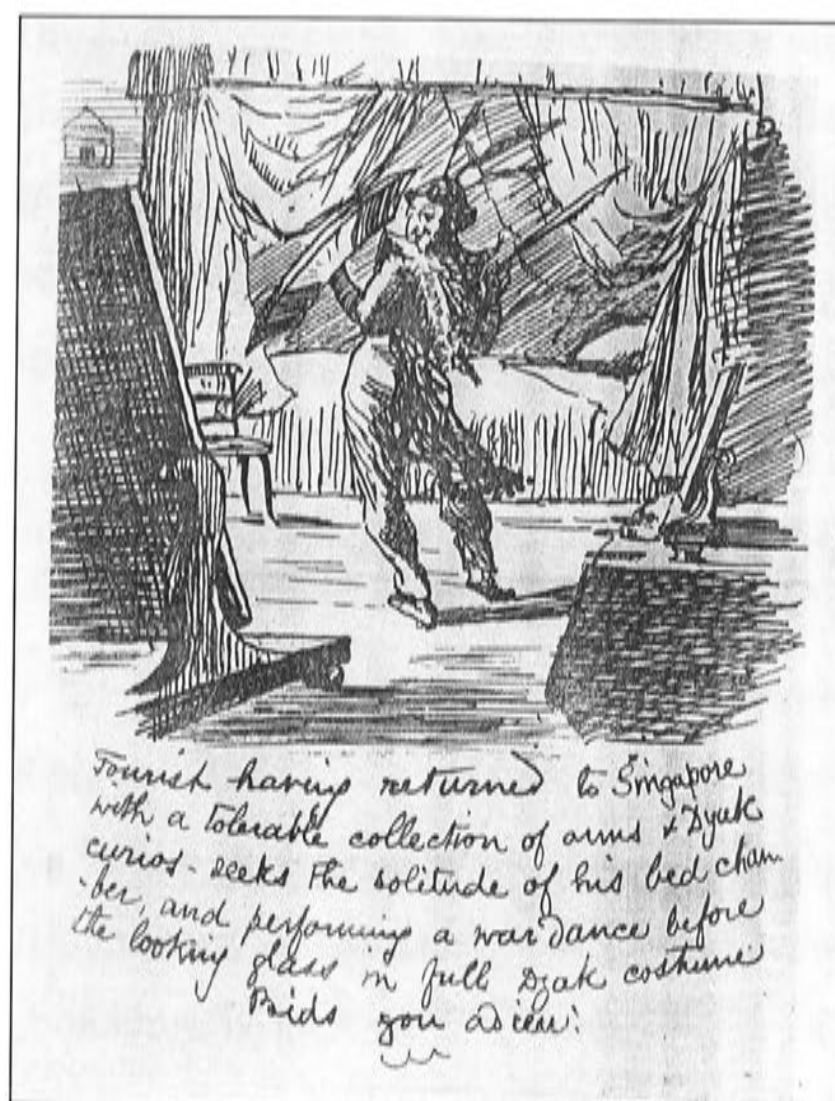 Tourist having returned to Singapore
with a tolerable collection of arms & Dyak
curios - seeks the solitude of his bed cham-
-ber, and performing a war dance before
the looking glass in full Dyak costume
Bids you adieu: